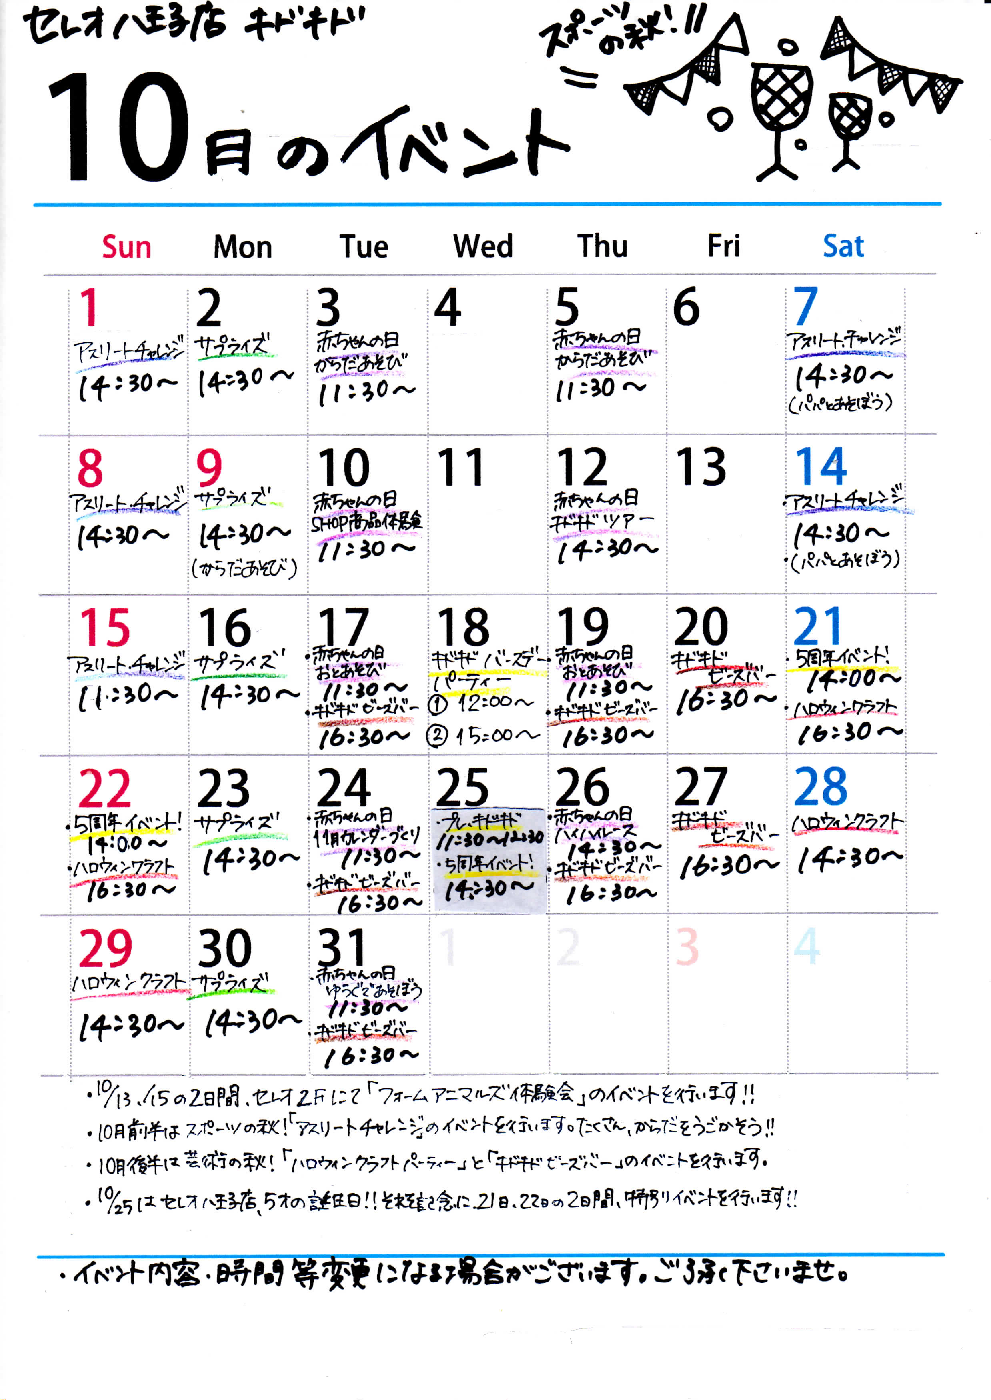 セレオ八王子店 キドキド
スポーツ
の秋!!
10月のイベント
Sun Mon Tue Wed Thu Fri Sat
1
アスリートチャレンジ
14:30～
2
サプライズ
14:30～
3
赤ちゃんの日
からだあそび
11:30～
4
5
赤ちゃんの日
からだあそび
11:30～
6
7
アスリートチャレンジ
14:30～
(パパとあそぼう)
8
アスリート・チャレンジ
14:30～
9
サプライズ
14:30～
(からだあそび)
10
赤ちゃんの日
SHOP商品体験会
11:30～
11
12
赤ちゃんの日
キドキドツアー
14:30～
13
14
・アスリートチャレンジ
14:30～
・(パパとあそぼう)
15
アスリート・チャレンジ
11:30～
16
サプライズ
14:30～
17
・赤ちゃんの日
おとあそび
11:30～
・キドキドビーズバー
16:30～
18
キドキドバースデー
パーティー
① 12:00～
② 15:00～
19
・赤ちゃんの日
おとあそび
11:30～
・キドキドビーズバー
16:30～
20
キドキド
ビーズバー
16:30～
21
・5周年イベント!
14:00～
・ハロウィンクラフト
16:30～
22
・5周年イベント!
14:00～
・ハロウィンクラフト
16:30～
23
サプライズ
14:30～
24
・赤ちゃんの日
11月カレンダーづくり
11:30～
・キドキドビーズバー
16:30～
25
・プレ・キドキド
11:30～12:30
・5周年イベント!
14:30～
26
・赤ちゃんの日
ハイハイレース
14:30～
・キドキドビーズバー
16:30～
27
キドキド
ビーズバー
16:30～
28
ハロウィンクラフト
14:30～
29
ハロウィンクラフト
14:30～
30
サプライズ
14:30～
31
・赤ちゃんの日
ゆうぐであそぼう
11:30～
・キドキドビーズバー
16:30～
1
2
3
4
・10/13、/15の2日間、セレオ2Fにて「フォームアニマルズ体験会」のイベントを行います!!
・10月前半はスポーツの秋!「アスリートチャレンジ」のイベントを行います。たくさん、からだをうごかそう!!
・10月後半は芸術の秋!「ハロウィンクラフトパーティー」と「キドキドビーズバー」のイベントを行います。
・10/25はセレオ八王子店、5才の誕生日!!それを記念に、21日、22日の2日間、特別イベントを行います!!
・イベント内容・時間等変更になる場合がございます。ご了承下さいませ。